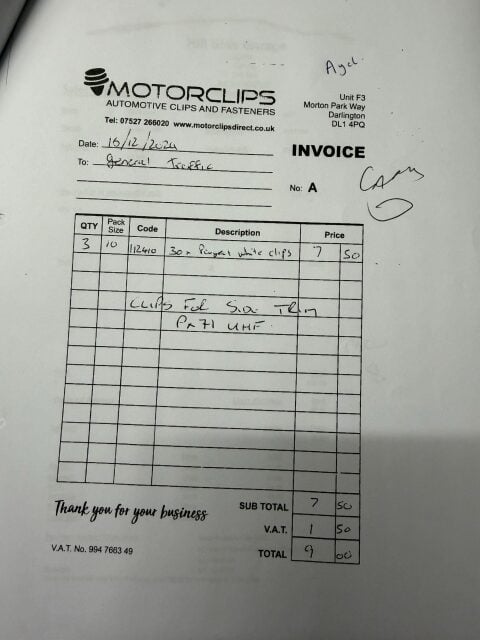 MOTORCLIPS
AUTOMOTIVE CLIPS AND FASTENERS
Tel: 07527 266020 www.motorclipsdirect.co.uk
Unit F3
Morton Park Way
Darlington
DL1 4PQ
Date: 16/12/2024
INVOICE
To: General Traffic
No: A
QTY Pack Size Code Description Price
3 10 112410 30x Peugeot white clips 7 50
CLIPS FOR SIDE TRIM
PN71 UHF
Thank you for your business
SUB TOTAL 7 50
V.A.T. 1 50
TOTAL 9 00
V.A.T. No. 994 7663 49